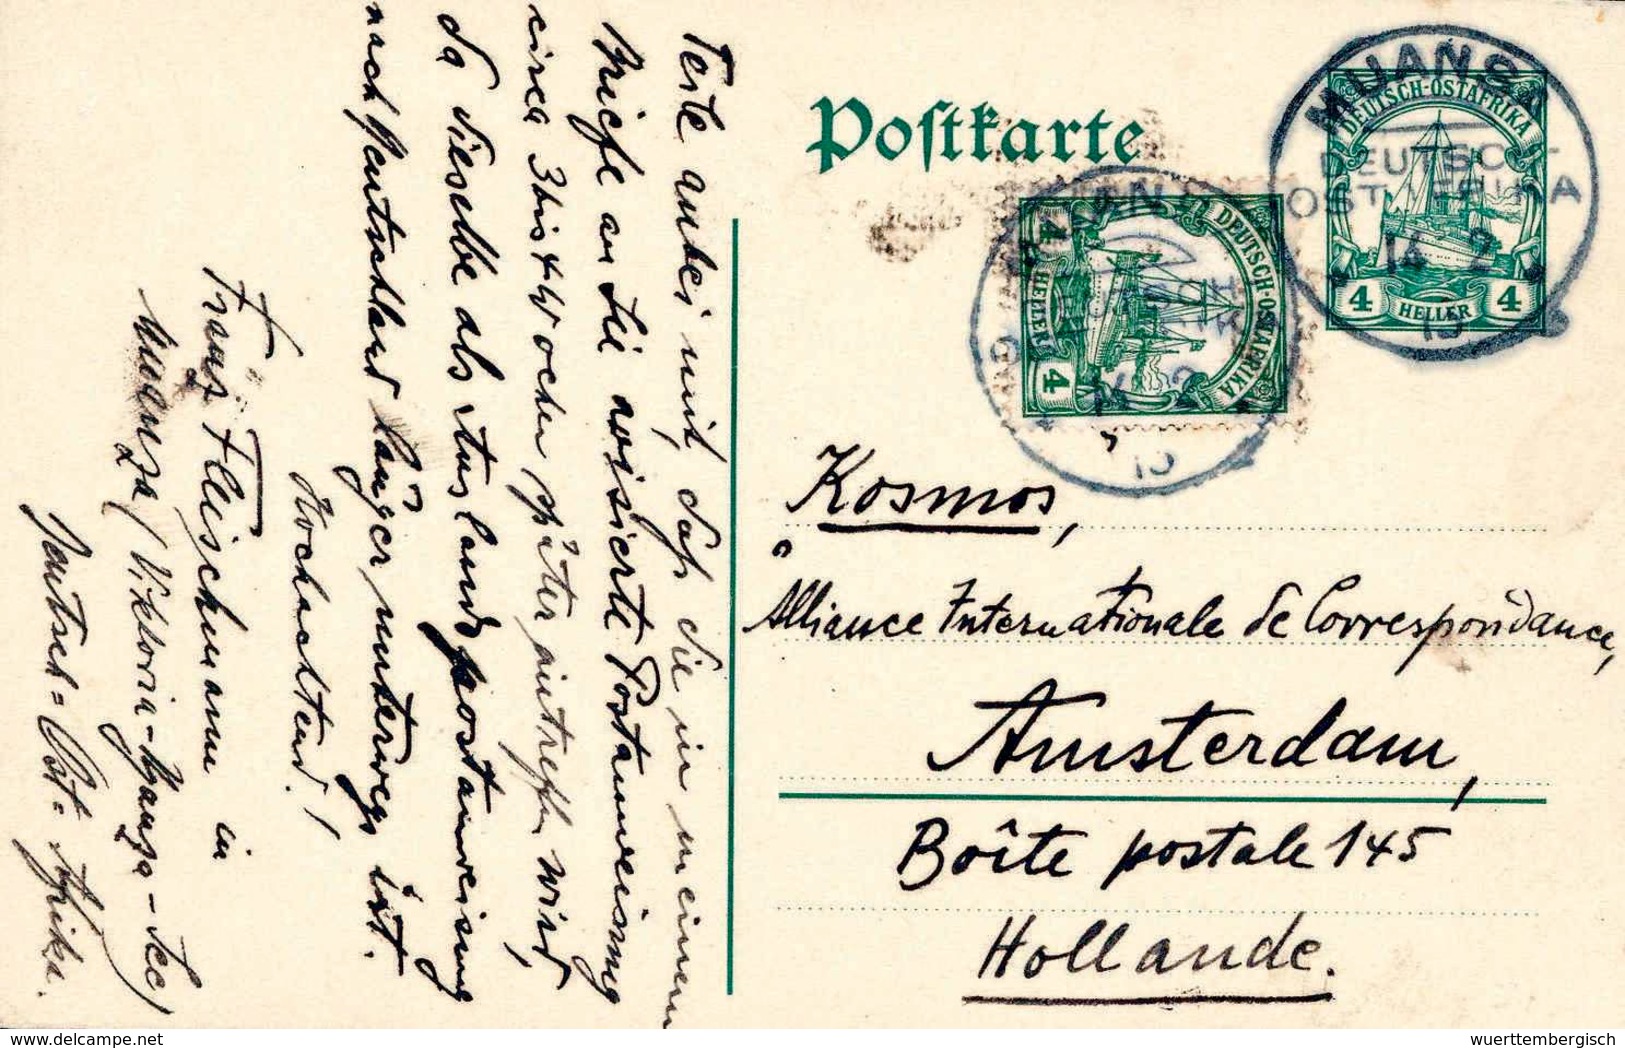 Postkarte
MUANSA
DEUTSCH-
OSTAFRIKA
14 2
10
DEUTSCH-OSTAFRIKA
4 HELLER 4
DEUTSCH-OSTAFRIKA
4 HELLER 4
14 2
10
Kosmos,
Alliance Internationale de Correspondance,
Amsterdam,
Boîte postale 145
Hollande.
Teile anbei mit, daß die in meinem
Briefe an Sie avisierte Postanweisung
circa 3 bis 4 Wochen später eintreffen wird,
da dieselbe als Auslandspostanweisung
nach Deutschland länger unterwegs ist.
Hochachtend!
Franz Fleischmann in
Muanza (Viktoria-Nyanza-See)
Deutsch-Ost-Afrika.
delcampe.net
wuerttembergisch